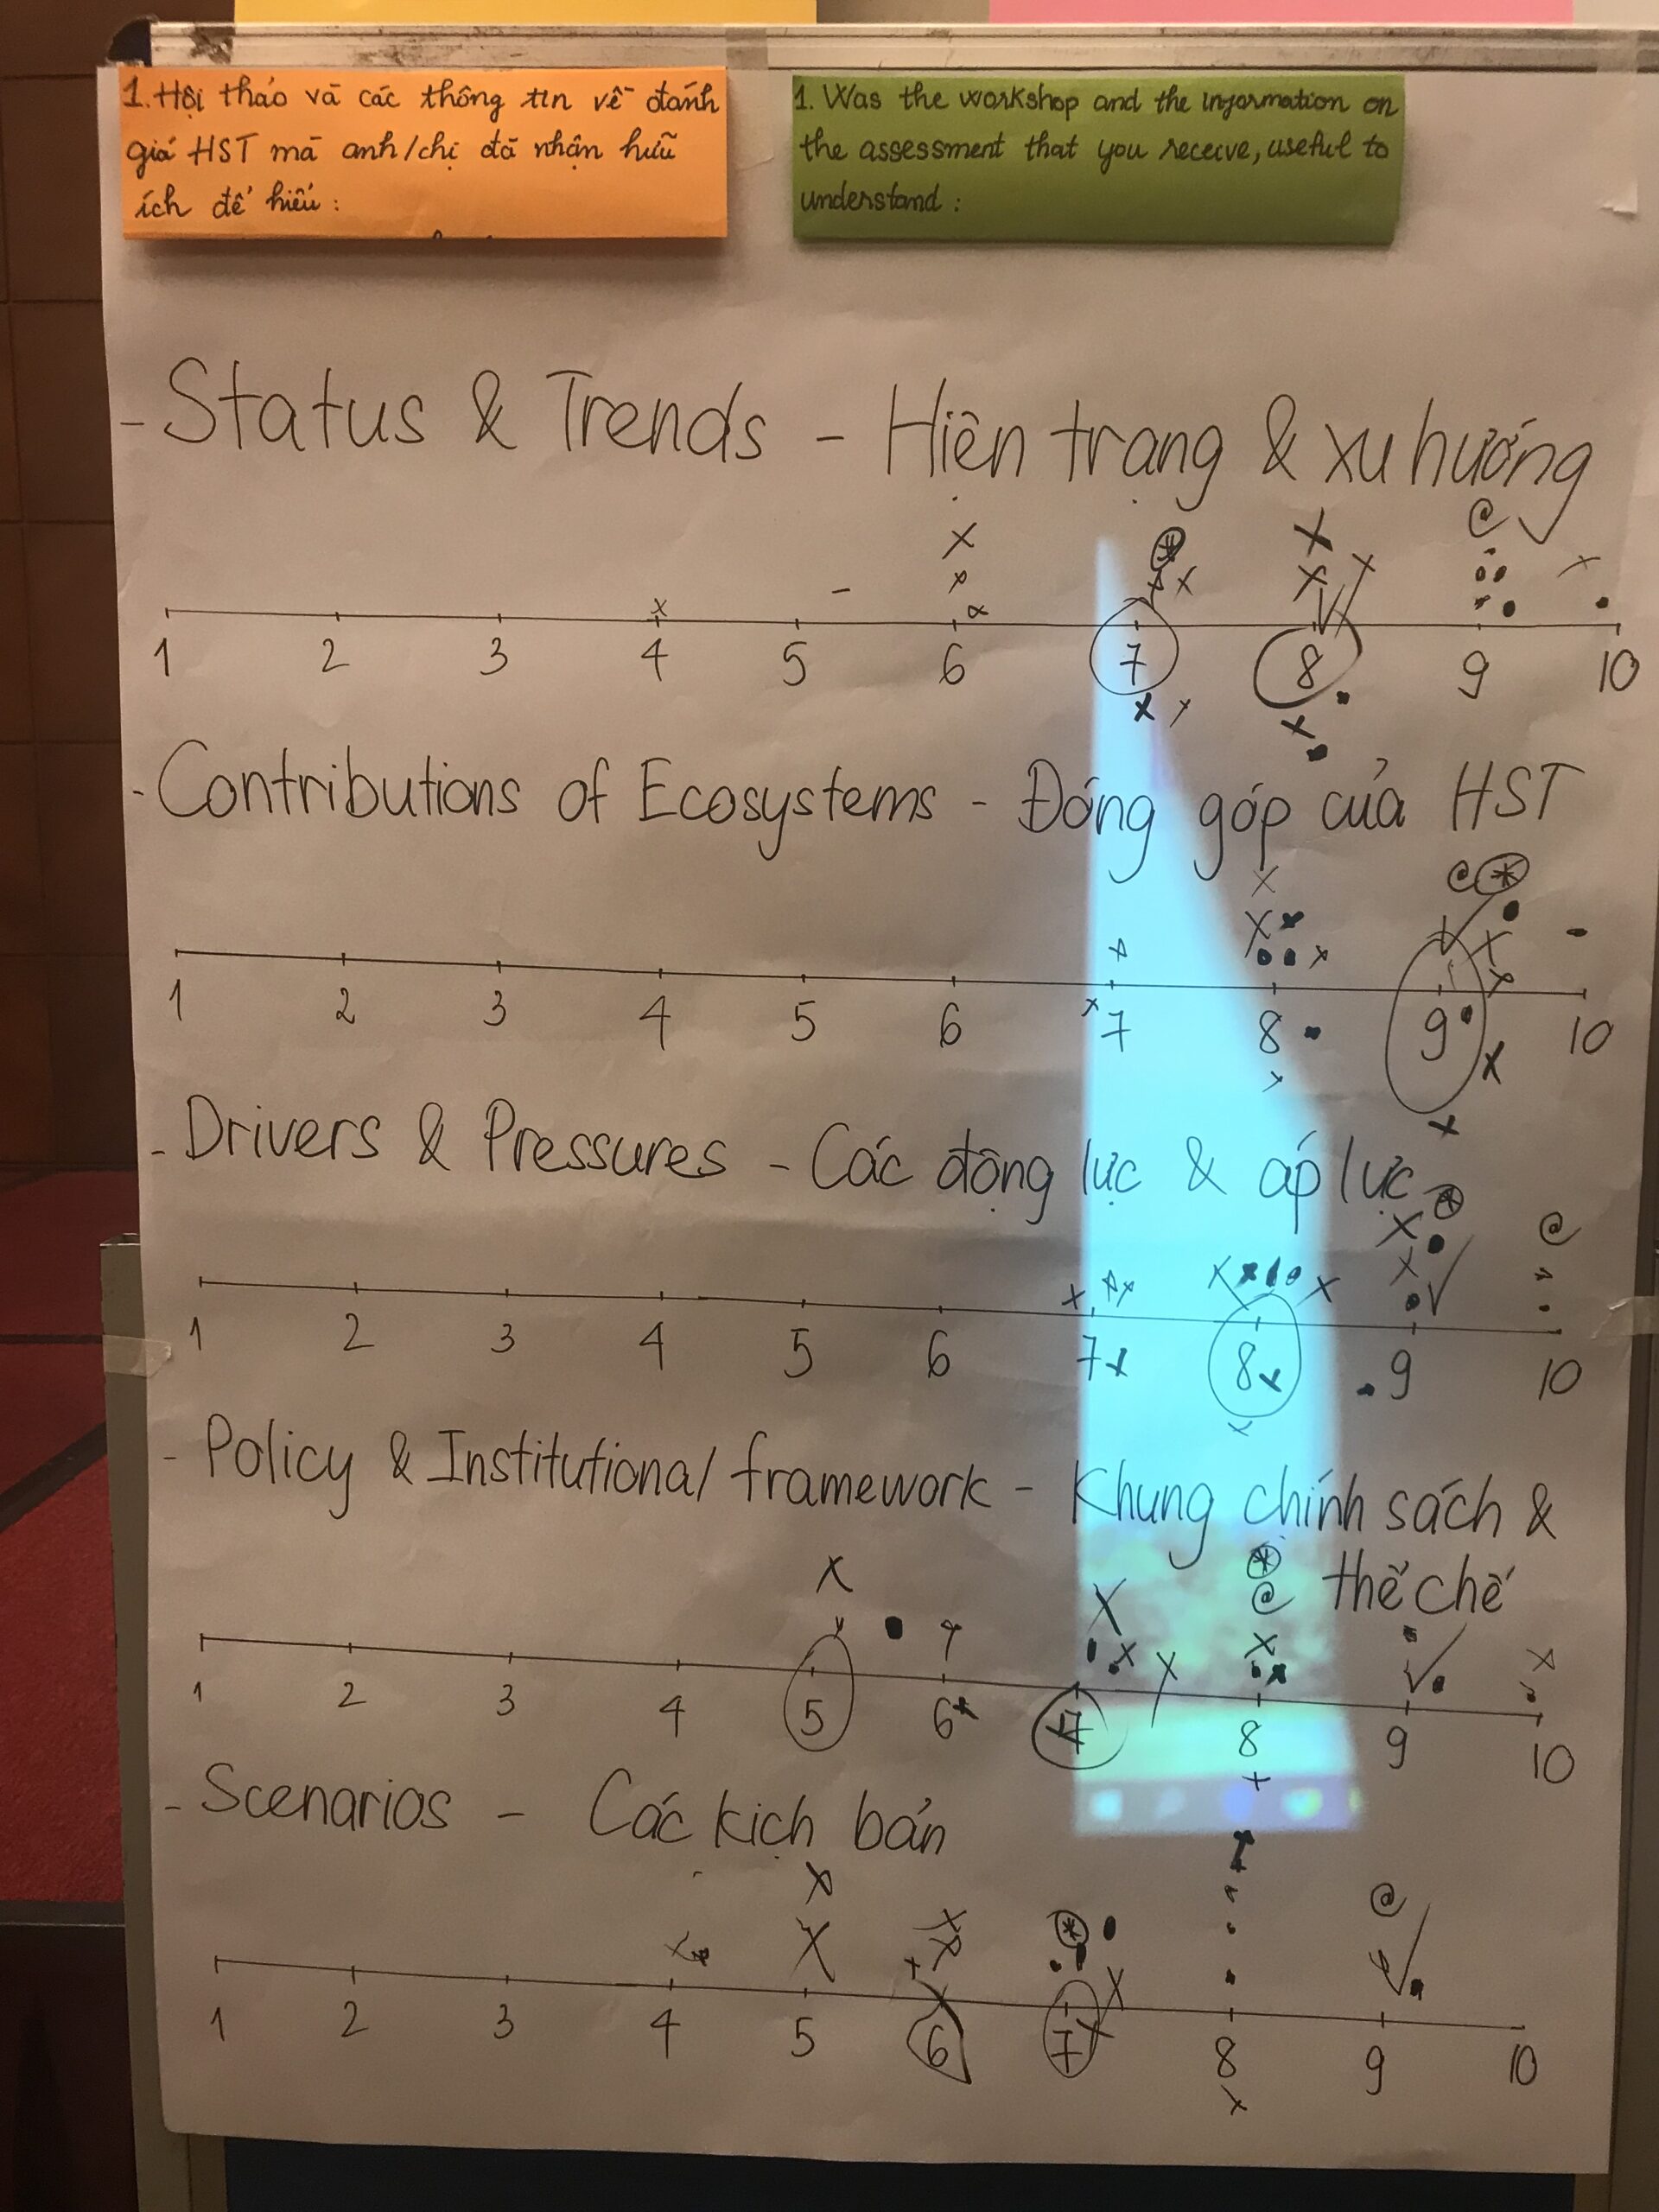 1. Hội thảo và các thông tin về đánh
giá HST mà anh/chị đã nhận hữu
ích để hiểu:
1. Was the workshop and the information on
the assessment that you receive, useful to
understand:
- Status & Trends - Hiện trạng & xu hướng
1 2 3 4 5 6 7 8 9 10
- Contributions of Ecosystems - Đóng góp của HST
1 2 3 4 5 6 7 8 9 10
- Drivers & Pressures - Các động lực & áp lực
1 2 3 4 5 6 7 8 9 10
- Policy & Institutional framework - Khung chính sách &
thể chế
1 2 3 4 5 6 7 8 9 10
- Scenarios - Các kịch bản
1 2 3 4 5 6 7 8 9 10